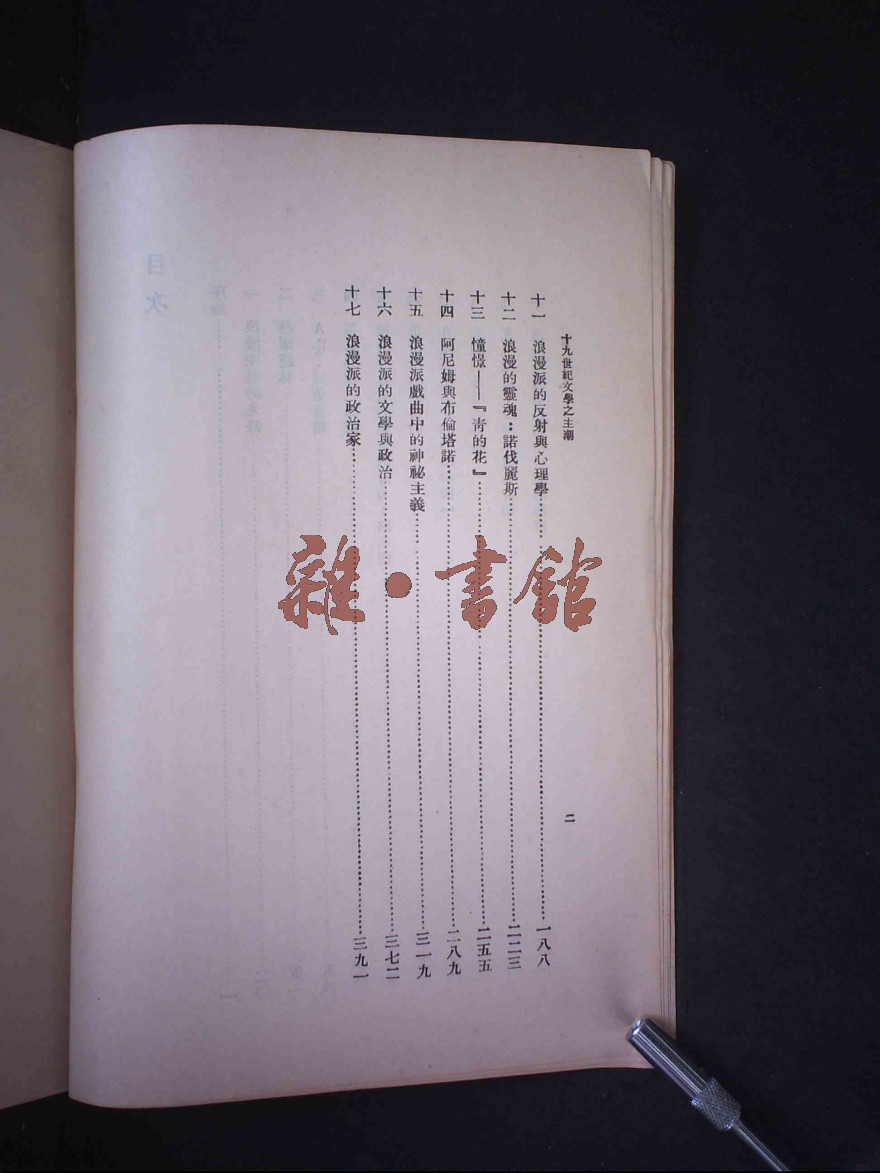 十九世紀文學之主潮
二
十一 浪漫派的反射與心理學……一八八
十二 浪漫的靈魂：諾伐麗斯……二二三
十三 憧憬——『青的花』……二五五
十四 阿尼姆與布倫塔諾……二八九
十五 浪漫派戲曲中的神祕主義……三一九
十六 浪漫派的文學與政治……三七二
十七 浪漫派的政治家……三九一
目次
雜·書館